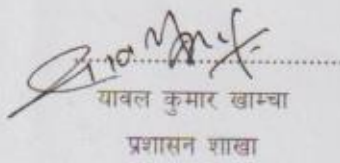 यावल कुमार खाम्चा
प्रशासन शाखा